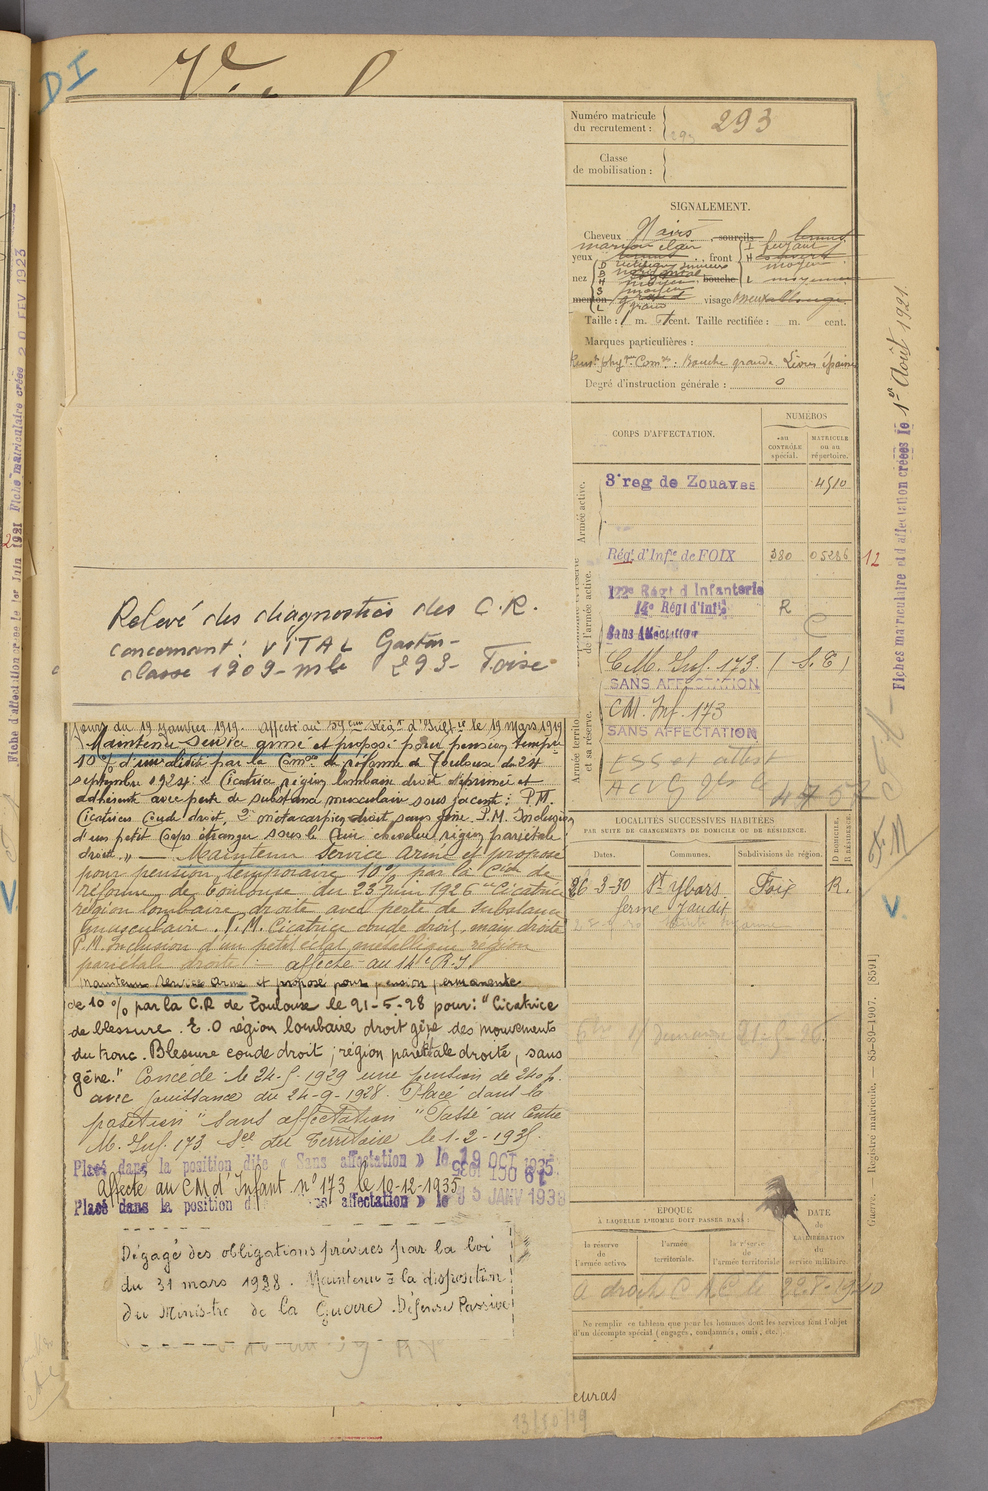 DI
Relevé des diagnostics des C.R.
concernant : VITAL Gaston
classe 1909 - mle 293 - Foix
jours du 19 Janvier 1919. Affecté au 59ème Régt d'Inftie le 19 Mars 1919
Maintenu service armé et proposé pour pension tempre
10 % d'invalidité par la Comon de réforme de Toulouse du 24
septembre 1924 : " Cicatrice région lombaire droite déprimée et
adhérente avec perte de substance musculaire sous jacente : P.M.
Cicatrices Coude droit, 2e métacarpien droit sans gêne. P.M. Inclusion
d'un petit Corps étranger sous le Cuir chevelu région pariétale
droite. " — Maintenu Service Armé et proposé
pour pension temporaire 10 % par la Cion de
réforme de Toulouse du 23 juin 1926 " Cicatrice
région lombaire droite avec perte de substance
musculaire. P.M. Cicatrice coude droit, main droite
P.M. Inclusion d'un petit éclat métallique région
pariétale droite. — affecté au 14e R.I.
Maintenu service armé et proposé pour pension permanente
de 10 % par la C.R de Toulouse le 21-5-28 pour : " Cicatrice
de blessure. E.O région lombaire droit gêne des mouvements
du tronc. Blessure coude droit ; région pariétale droite, sans
gêne." Concédé le 24-5-1929 une pension de 240 f.
avec jouissance du 24-9-1928. Placé dans la
position " sans affectation " Passé au Centre
M. Inf. 173 Sce du Territoire le 1-2-1935.
Placé dans la position dite « Sans affectation » le 19 OCT 1935.
Affecté au CM d'Infant. n° 173 le 10-12-1935
Placé dans la position affectation » le 5 JANV 1938
Dégagé des obligations prévues par la loi
du 31 mars 1928. Maintenu à la disposition
du Ministre de la Guerre. Défense Passive
Numéro matricule
du recrutement : 293
293
Classe
de mobilisation :
SIGNALEMENT.
Cheveux Noirs sourcils
yeux marron clair front I fuyant
H
moyen
nez D rectiligne B H S moyen L grand bouche L moyenne
menton visage osseux
Taille : 1 m. 61 cent. Taille rectifiée : m. cent.
Marques particulières :
Renst phyques Comres : Bouche grande Lèvres épaisses
Degré d'instruction générale : 0
CORPS D'AFFECTATION.
NUMÉROS
au CONTRÔLE spécial.
MATRICULE ou au répertoire.
Armée active.
3e reg de Zouaves 4510
de l'armée active.
Régt d'Infie de FOIX 380 05286 12
122e Régt d Infanterie
14e Régt d'Infie R
Sans Affectation
C.M. Inf. 173. (S.E)
SANS AFFECTATION
Armée territo.
et sa réserve.
CM. Inf. 173
SANS AFFECTATION
LOCALITÉS SUCCESSIVES HABITÉES
PAR SUITE DE CHANGEMENTS DE DOMICILE OU DE RÉSIDENCE.
Dates. Communes. Subdivisions de région.
D DOMICILE.
R RÉSIDENCE.
26-3-30 St Ybars Foix R.
ferme Jaudit
ÉPOQUE
À LAQUELLE L'HOMME DOIT PASSER DANS :
la réserve
de
l'armée active.
l'armée
territoriale.
la réserve
de
l'armée territoriale
DATE
de
LA LIBÉRATION
du
service militaire.
a droit C
Ne remplir ce tableau que pour les hommes dont les services font l'objet
d'un décompte spécial (engagés, condamnés, omis, etc.)
Guerre. — Registre matricule. — 85-89-1907. [8591]
Fiches matriculaire et d'affectation créées le 1er Août 1921.
Fiche d'affectation créée le 1er Juin 1921 Fiche matriculaire créée 20 FEV 1923